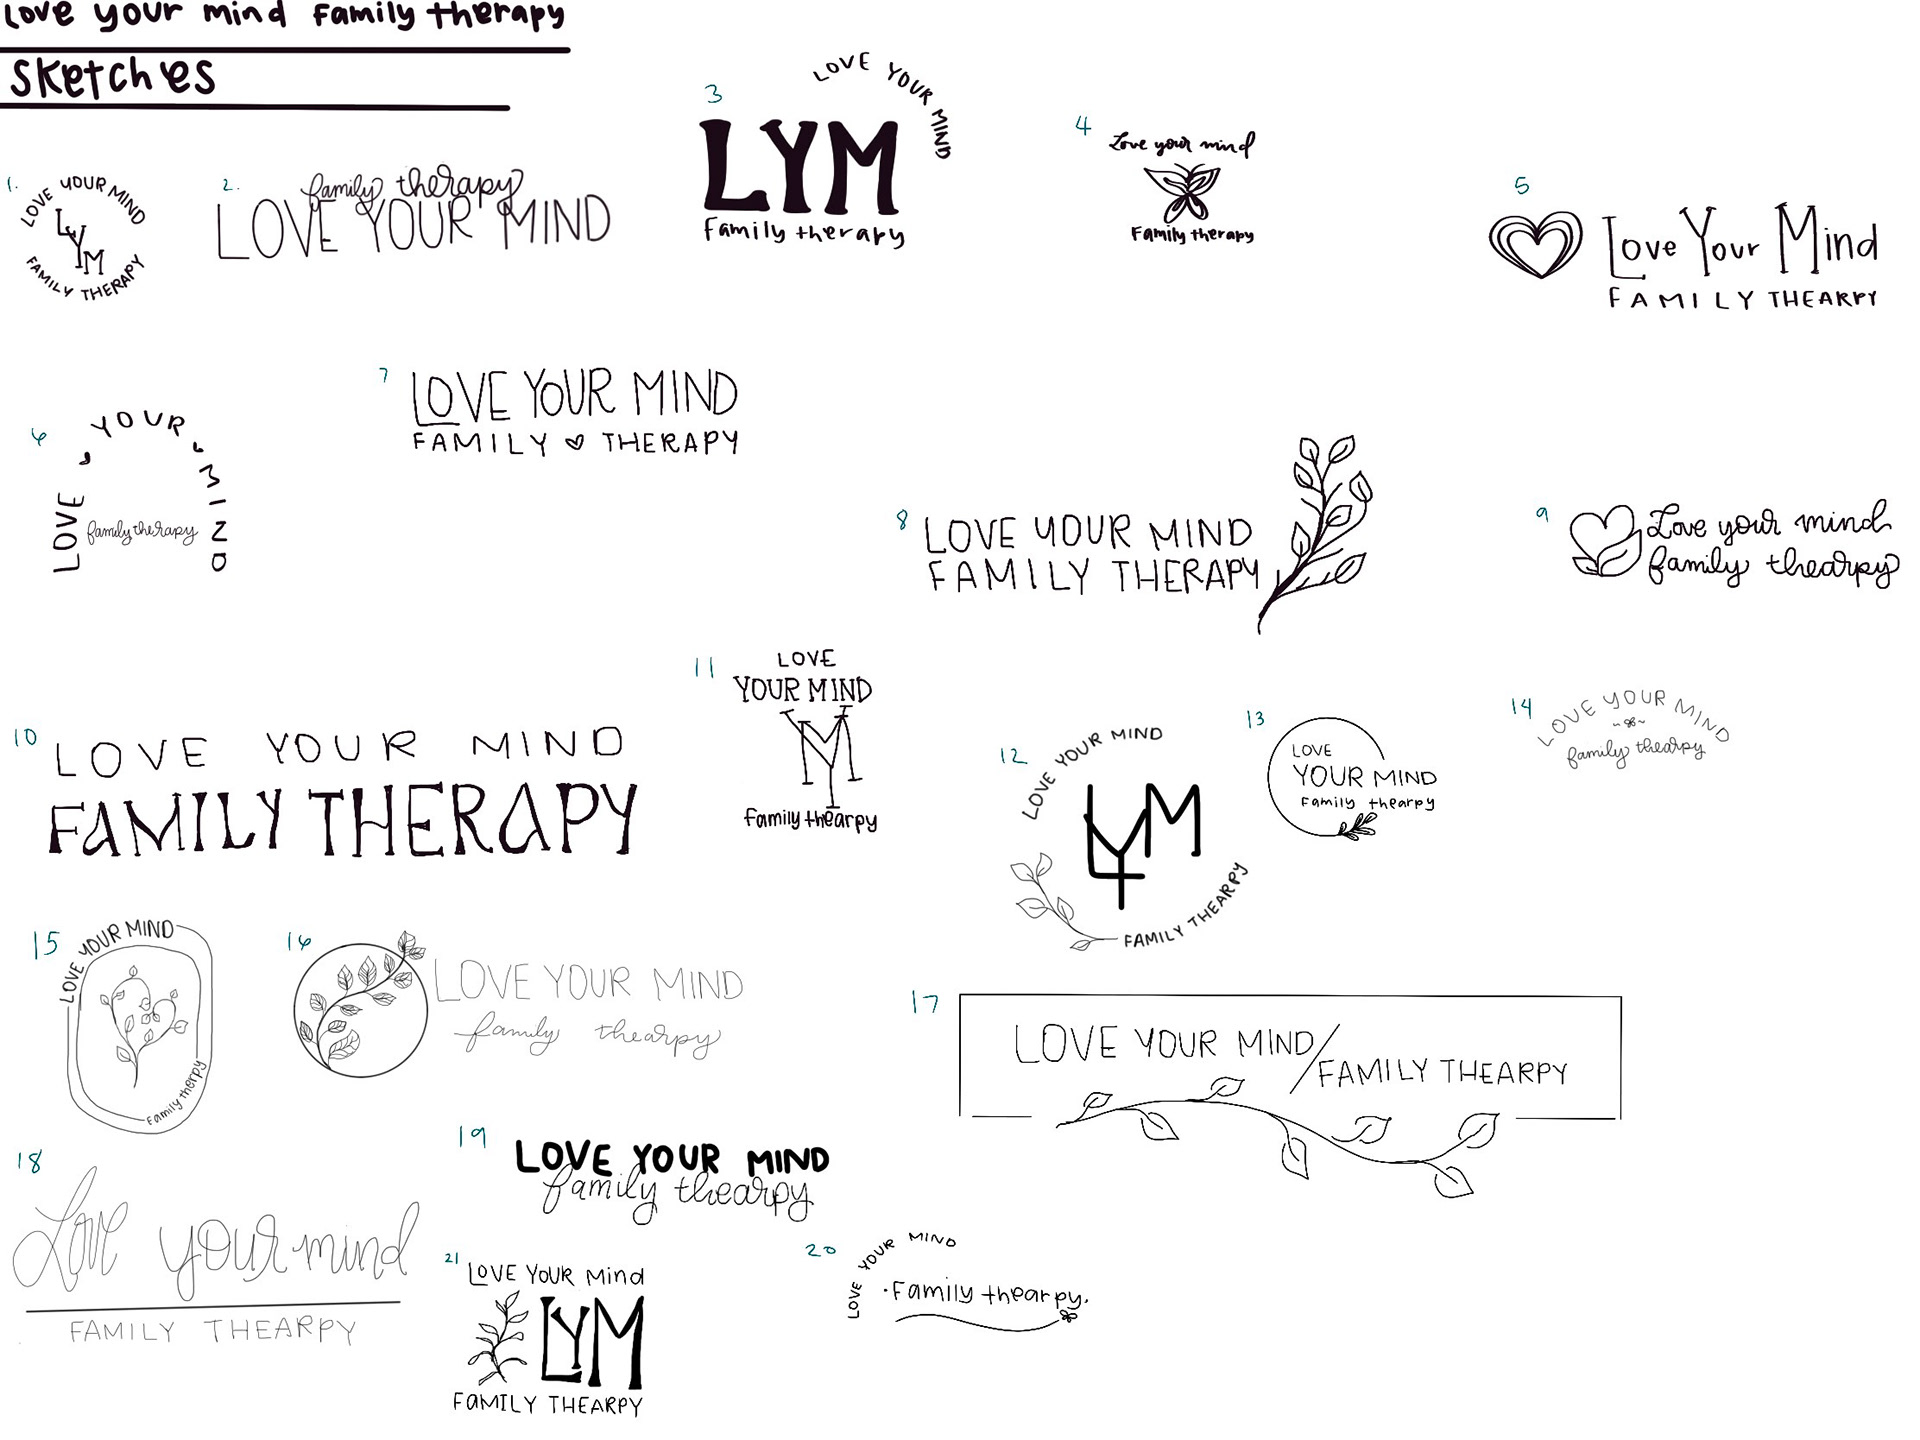 Love your mind Family therapy
Sketches
1.
LOVE YOUR MIND
LYM
FAMILY THERAPY
2.
family therapy
LOVE YOUR MIND
3
LOVE YOUR MIND
LYM
Family therapy
4
Love your mind
Family therapy
5
Love Your Mind
FAMILY THEARPY
6
LOVE YOUR MIND
family therapy
7
LOVE YOUR MIND
FAMILY THERAPY
8
LOVE YOUR MIND
FAMILY THERAPY
9
Love your mind
family thearpy
10
LOVE YOUR MIND
FAMILY THERAPY
11
LOVE
YOUR MIND
YM
Family thearpy
12
LOVE YOUR MIND
LYM
FAMILY THEARPY
13
LOVE
YOUR MIND
Family thearpy
14
LOVE YOUR MIND
family thearpy
15
LOVE YOUR MIND
Family therpy
16
LOVE YOUR MIND
family thearpy
17
LOVE YOUR MIND/
FAMILY THEARPY
18
Love your mind
FAMILY THEARPY
19
LOVE YOUR MIND
family thearpy
21
LOVE YOUR Mind
LYM
FAMILY THEARPY
20
LOVE YOUR MIND
·Family thearpy.